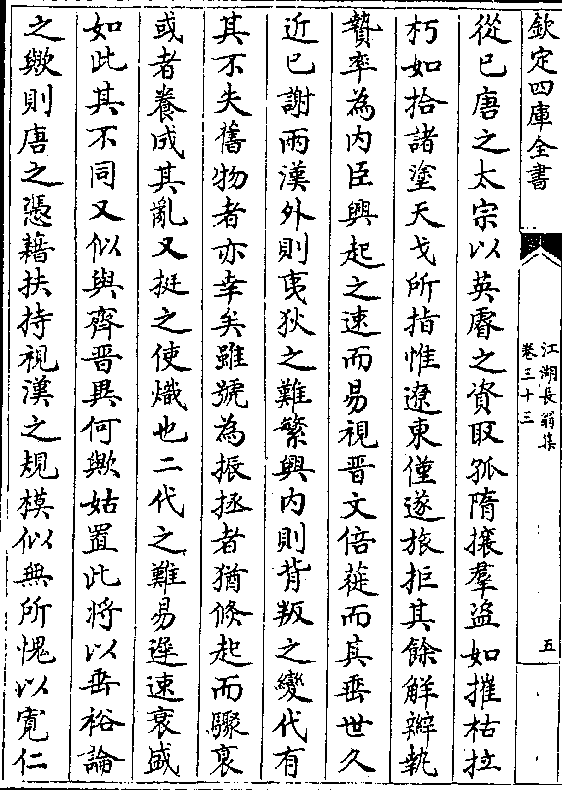 欽定四庫全書
江湖長翁集
卷三十三
五
從已唐之太宗以英睿之資取孤隋攘羣盜如摧枯拉
朽如拾諸塗天戈所指惟遼東僅遂旅拒其餘解辮執
贄率為内臣興起之速而易視晉文倍蓰而其垂世久
近已謝兩漢外則夷狄之難繁興内則背叛之變代有
其不失舊物者亦幸矣雖號為振拯者猶倏起而驟衰
或者養成其亂又挺之使熾也二代之難易遲速衰盛
如此其不同又似與齊晉異何歟姑置此將以垂裕論
之歟則唐之憑藉扶持視漢之規模似無所愧以寬仁